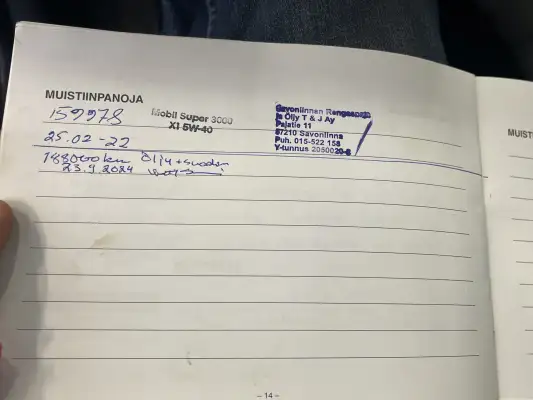 MUISTIINPANOJA
159978
Mobil Super 3000
X1 5W-40
Savonlinnan Rengaspojat
ja Öljy T & J Ay
Pajatie 11
57210 Savonlinna
Puh. 015-522 158
Y-tunnus 2050020-6
25.02-22
188000 km Öljy + suodatin
23.9.2024
– 14 –
MUIST